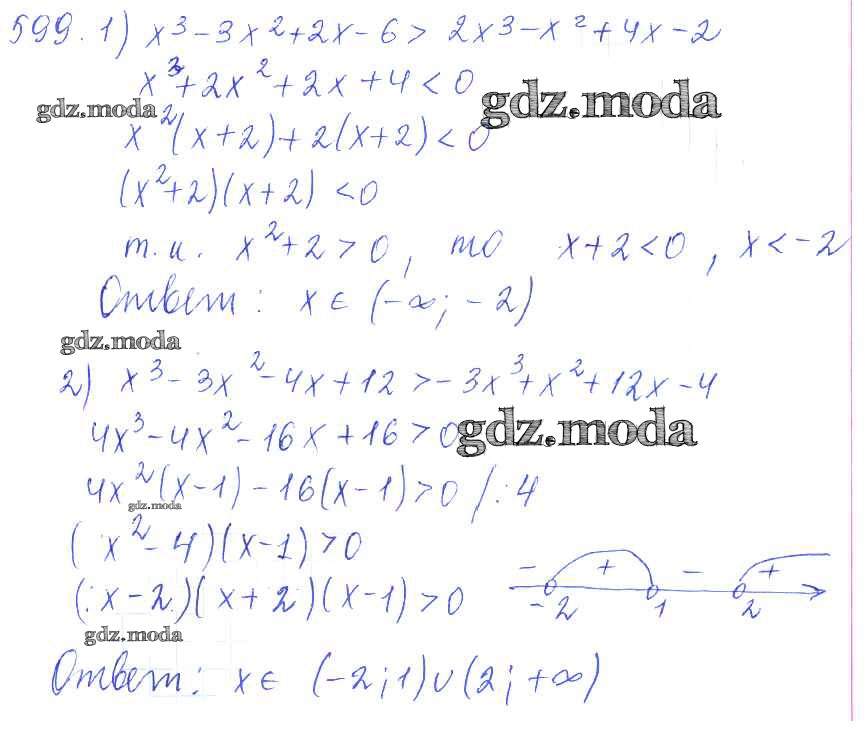 599. 1) x³ - 3x² + 2x - 6 > 2x³ - x² + 4x - 2
x³ + 2x² + 2x + 4 < 0
gdz.moda
gdz.moda
x²(x+2) + 2(x+2) < 0
(x²+2)(x+2) < 0
т.к. x²+2 > 0, то x+2 < 0, x < -2
Ответ: x ∈ (-∞; -2)
gdz.moda
2) x³ - 3x² - 4x + 12 > -3x³ + x² + 12x - 4
4x³ - 4x² - 16x + 16 > 0
gdz.moda
4x²(x-1) - 16(x-1) > 0 /:4
gdz.moda
(x² - 4)(x-1) > 0
(x-2)(x+2)(x-1) > 0
- + - +
-2 1 2
gdz.moda
Ответ: x ∈ (-2; 1) ∪ (2; +∞)